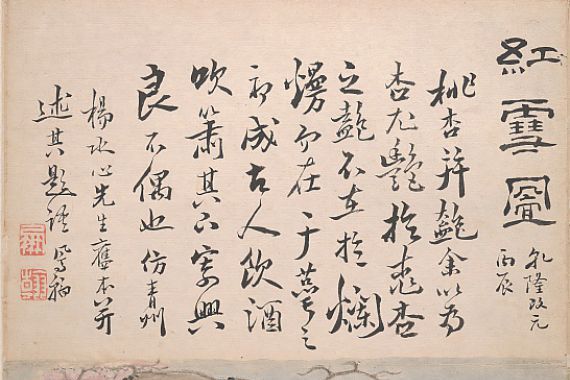 紅雪圖
乾隆改元
丙辰
桃杏并艷余以為
杏尤豔於桃杏
之艷不在於爛
熳而在于萼之
初成古人飲酒
吹簫其下寄興
良不偶也仿青州
楊水心先生舊本并
述其題語